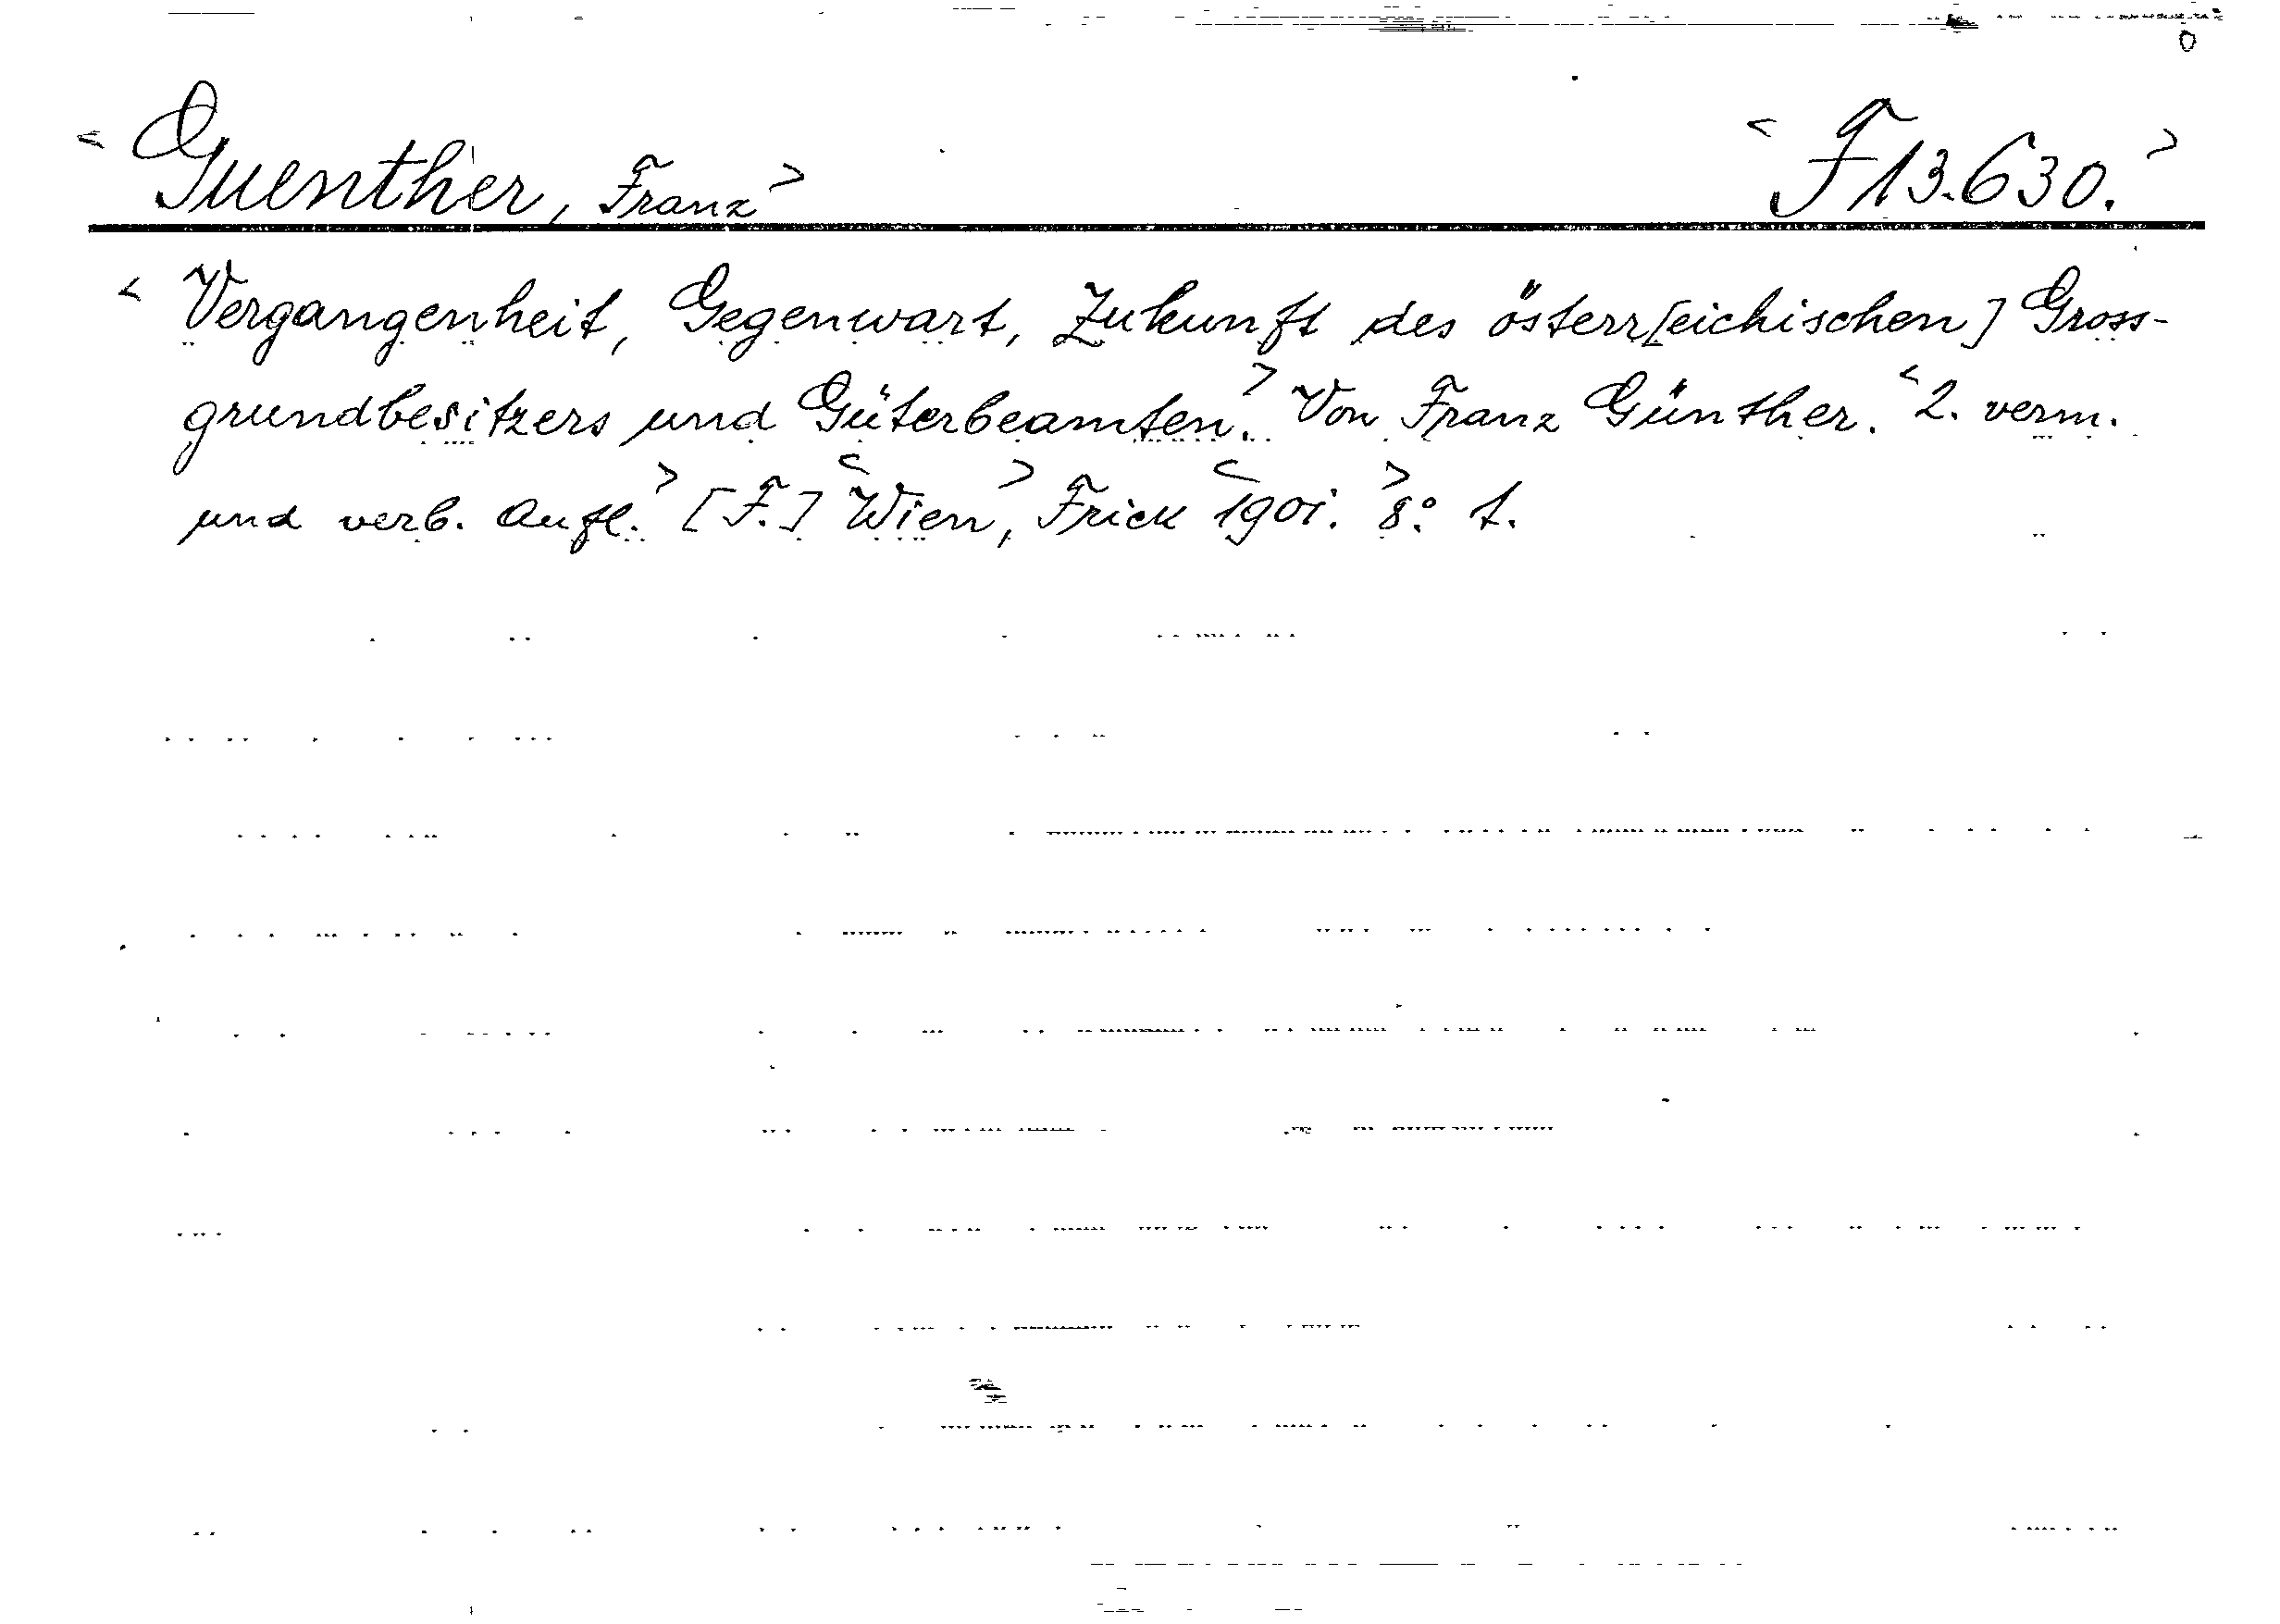 < Guenther, Franz > < F 13.630. >
< Vergangenheit, Gegenwart, Zukunft des österr[eichischen] Gross-
grundbesitzers und Güterbeamten. > Von Franz Günther. < 2. verm.
und verb. Aufl. > [F.] < Wien, > Frick < 1901. > 8.° f.